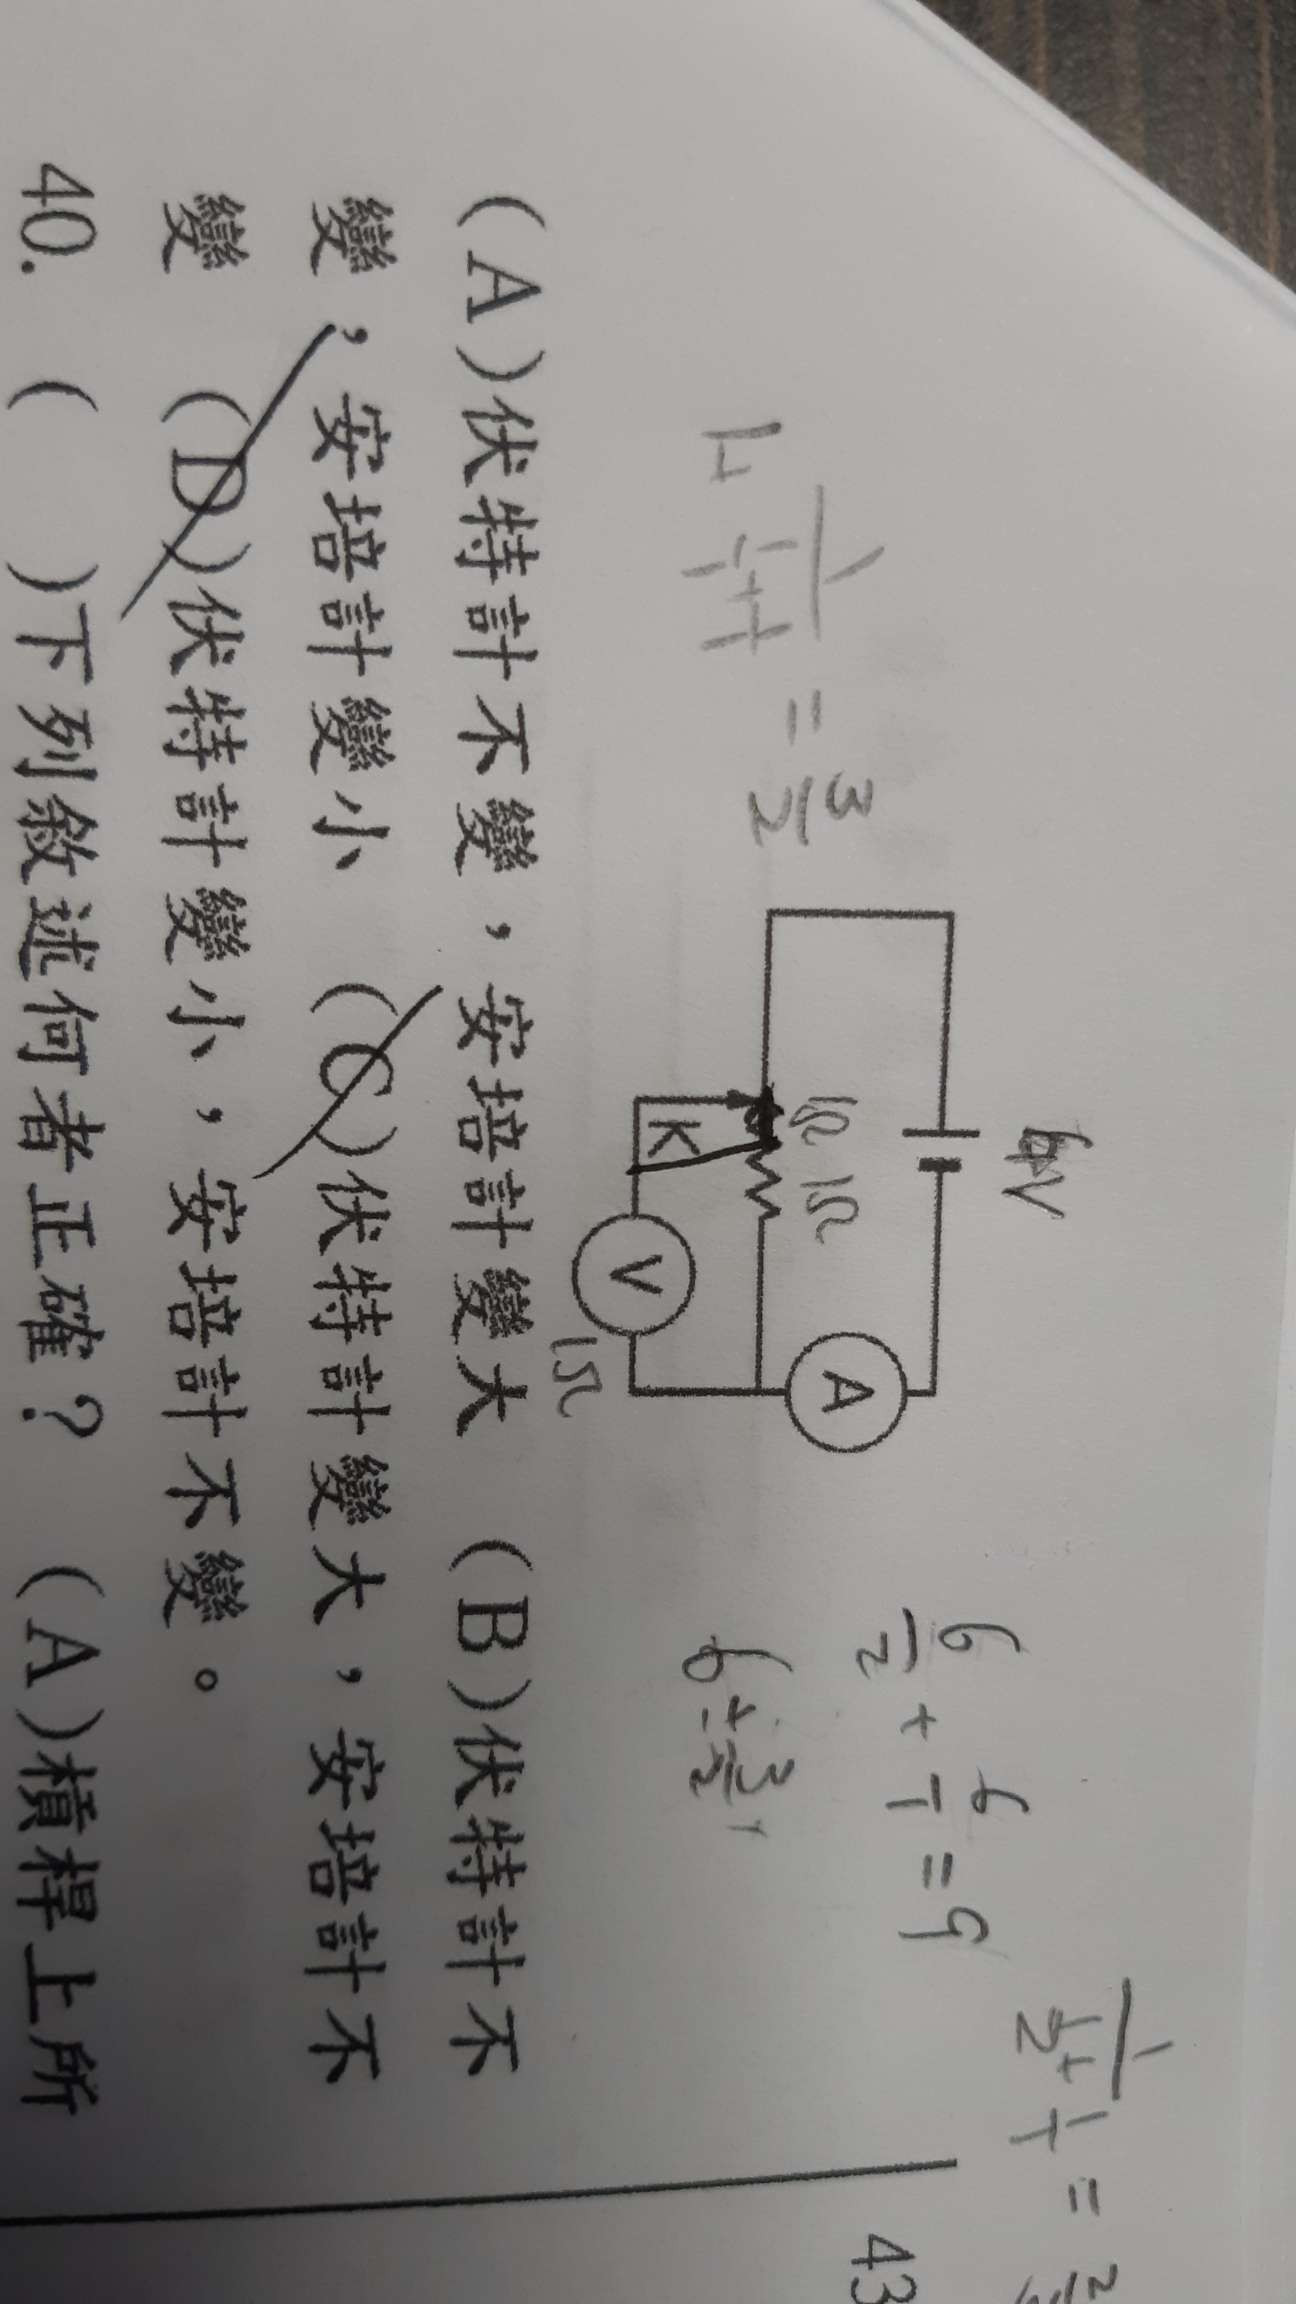 1/(1/1+1/1) = 3/2
6V
1Ω 1Ω
K
V
A
1Ω
6/2 + 6/1 = 9
6÷3/2
1/(1/2+1/1) =
43
(A)伏特計不變,安培計變大 (B)伏特計不
變,安培計變小 (C)伏特計變大,安培計不
變 (D)伏特計變小,安培計不變。
40. ( )下列敘述何者正確? (A)槓桿上所